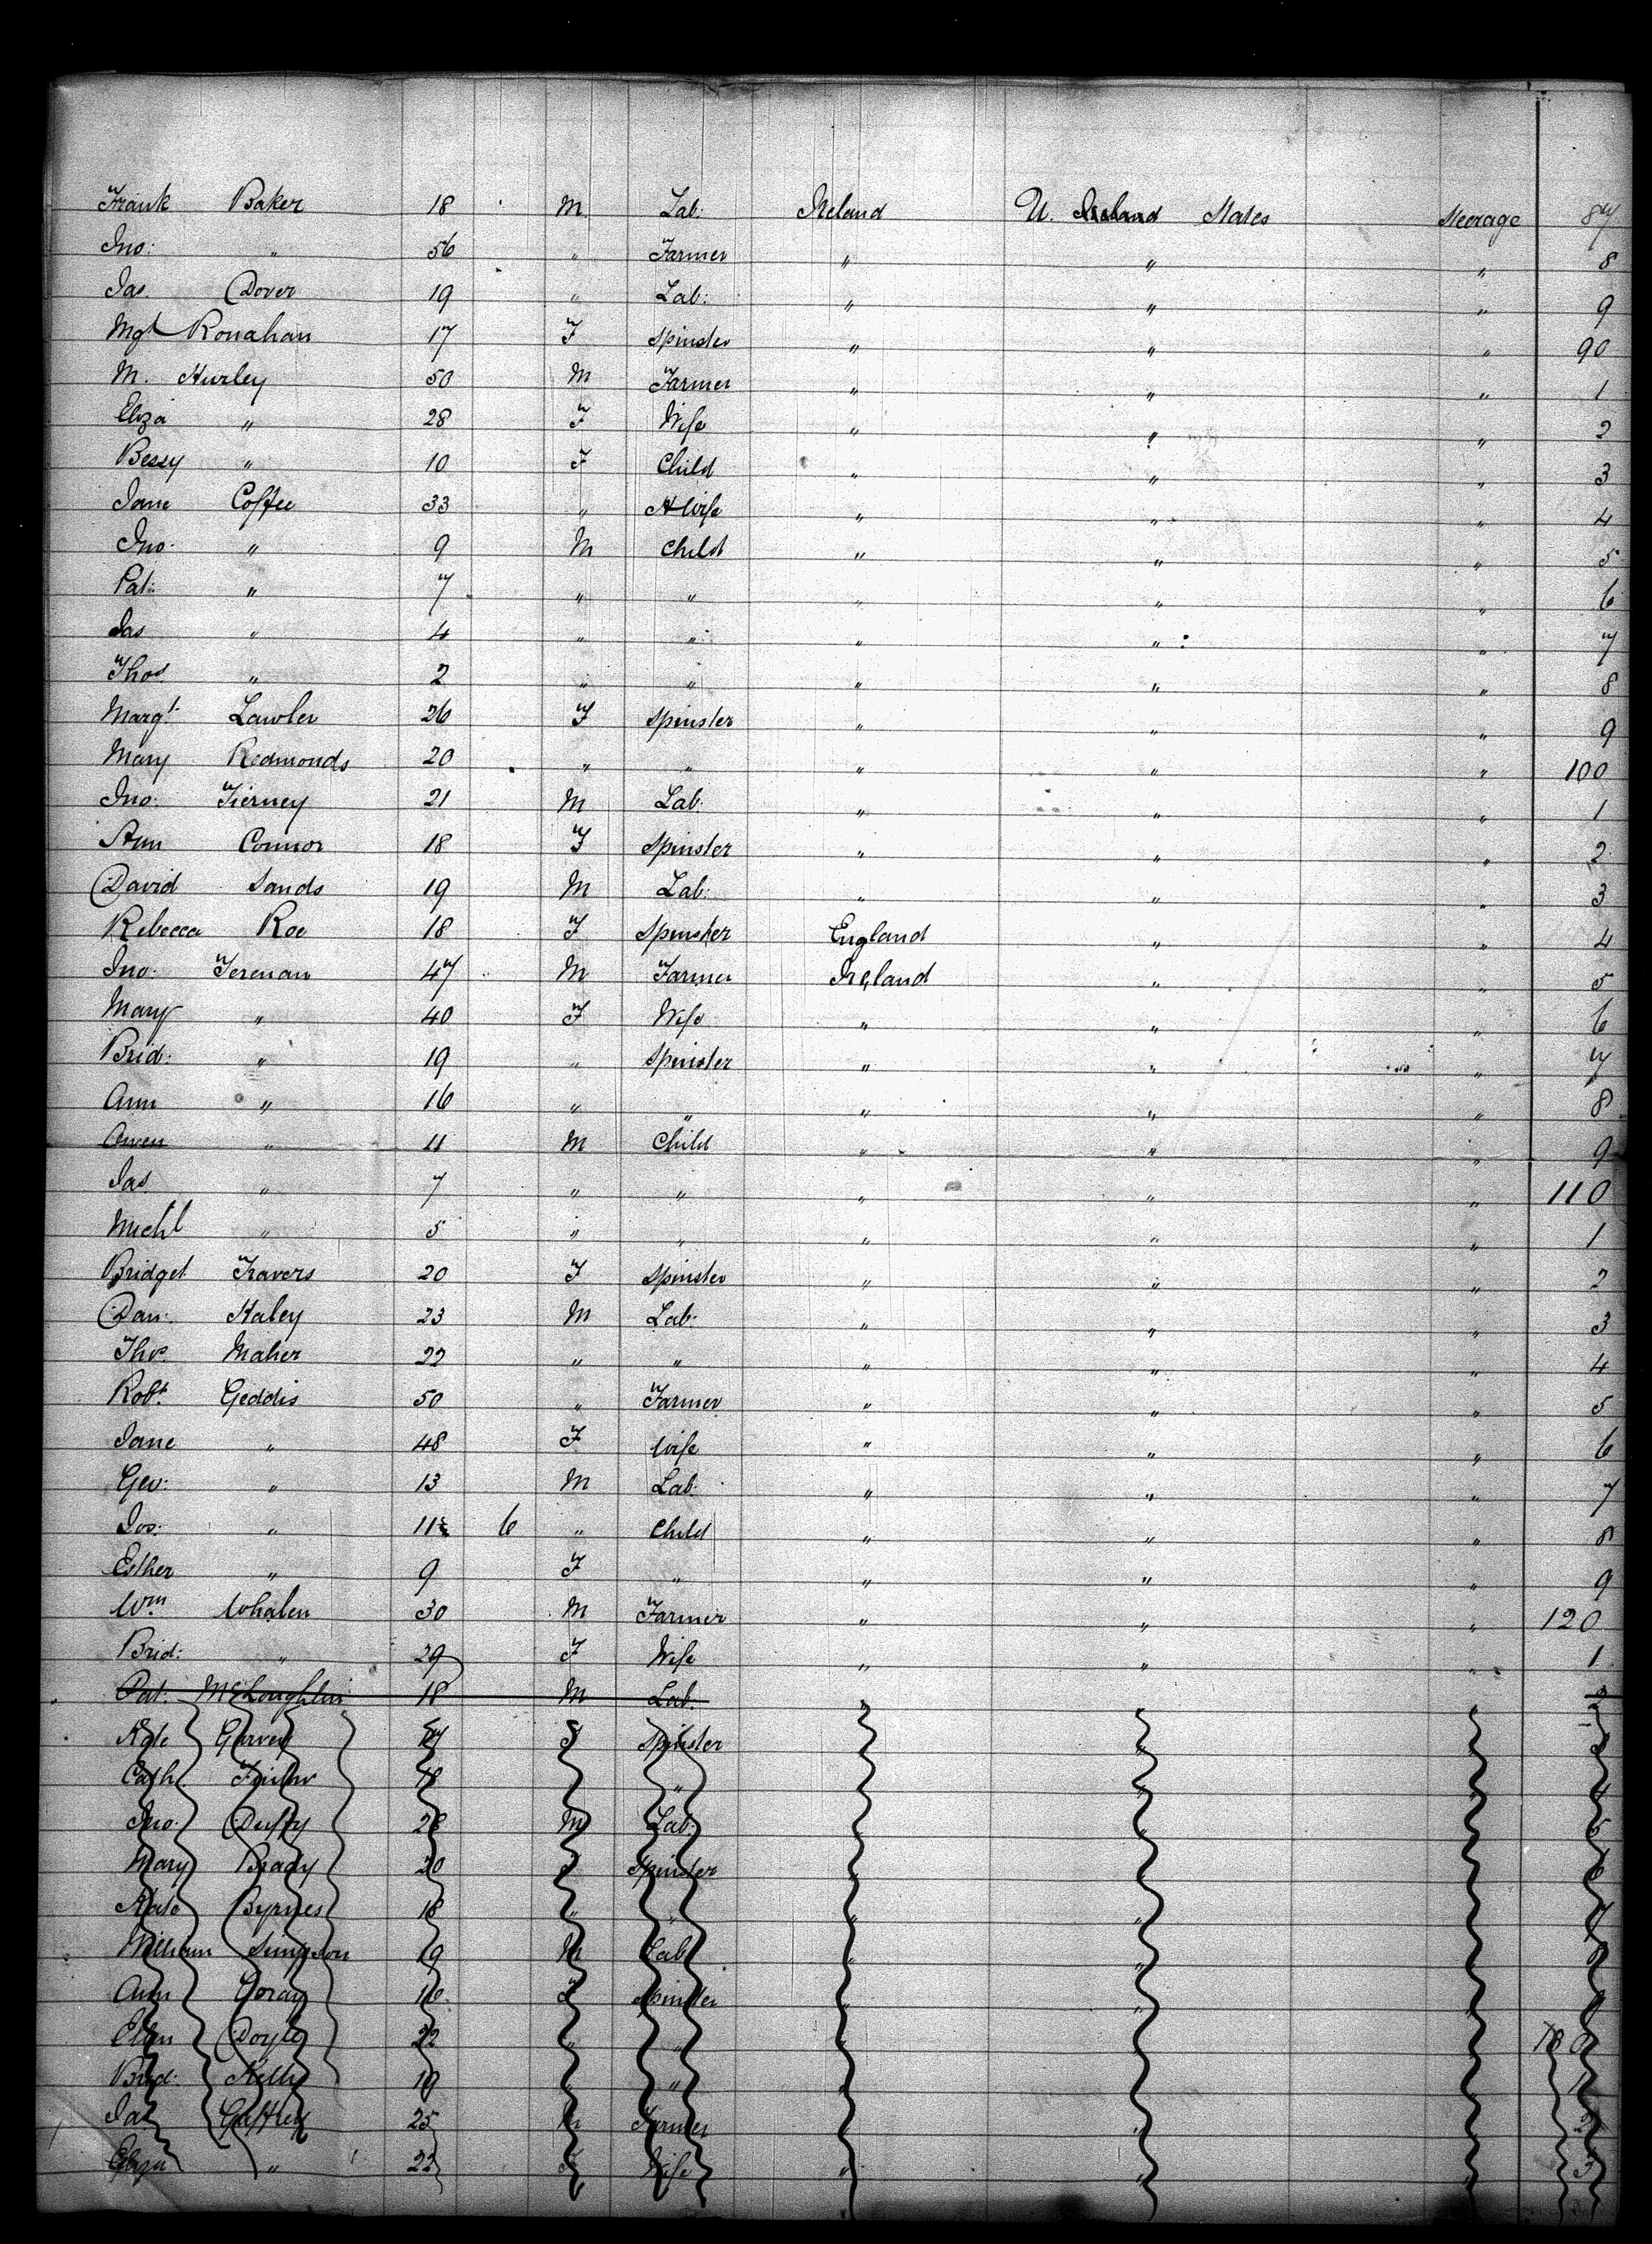 Frank Baker 18 M Lab: Ireland U. Ireland States Steerage 87
Jno: " 56 " Farmer " " " 8
Jas. Dover 19 " Lab: " " " 9
Mgt Ronahan 17 F Spinster " " " 90
M. Hurley 50 M Farmer " " " 1
Eliza " 28 F Wife " " " 2
Bessy " 10 F Child " " " 3
Jane Coffee 33 " Wife " " " 4
Jno. " 9 M Child " " " 5
Pat: " 7 " " " " " 6
Jas " 4 " " " " " 7
Thos " 2 " " " " " 8
Margt. Lawler 26 F Spinster " " " 9
Mary Redmonds 20 " " " " " 100
Jno: Tierney 21 M Lab: " " " 1
Ann Connor 18 F Spinster " " " 2
David Sands 19 M Lab: " " " 3
Rebecca Roe 18 F Spinster England " " 4
Jno. Terenan 47 M Farmer Ireland " " 5
Mary " 40 F Wife " " " 6
Brid: " 19 " Spinster " " " 7
Ann " 16 " " " " " 8
Owen " 11 M Child " " " 9
Jas. " 7 " " " " " 110
Michl " 5 " " " " " 1
Bridget Travers 20 F Spinster " " " 2
Dan: Haley 23 M Lab: " " " 3
Thos. Maher 22 " " " " " 4
Robt. Geddis 50 " Farmer " " " 5
Jane " 48 F Wife " " " 6
Geo: " 13 M Lab: " " " 7
Jos: " 11 6 " Child " " " 8
Esther " 9 F " " " " 9
Wm Whalen 30 M Farmer " " " 120
Brid: " 29 F Wife " " " 1
Pat: McLoughlin 18 M Lab. " " " 2
Kate Garvey 17 F Spinster " " " 3
Cath. 18 " " " " " 4
Jno: Duffy 28 M Lab: " " " 5
Mary Brady 20 F Spinster " " " 6
Kate Byrnes 18 " " " " " 7
William Simpson 19 M Lab " " " 8
Ann Goray 16 F Spinster " " " 9
Ellen Doyle 22 " " " " " 130
Brid: Kelly 19 " " " " " 1
Jas. Gaffney 25 M Farmer " " " 2
Eliza " 22 F Wife " " " 3